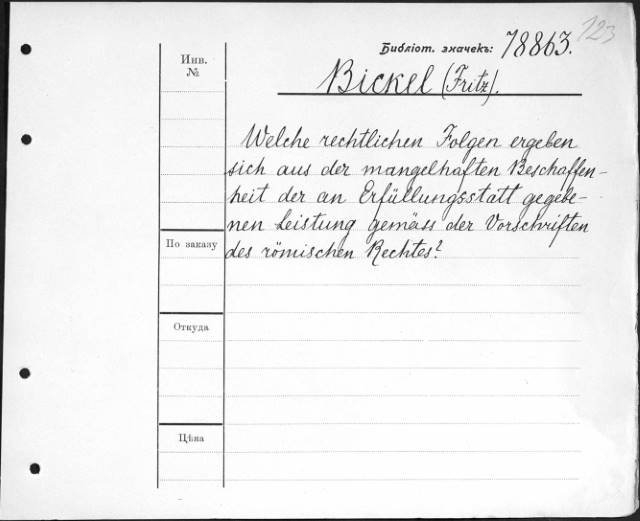 123
Библіот. значекъ: 78863.
Bickel (Fritz).
Инв.
№
Welche rechtlichen Folgen ergeben
sich aus der mangelhaften Beschaffen-
heit der an Erfüllungsstatt gegebe-
nen Leistung gemäss der Vorschriften
des römischen Rechtes?
По заказу
Откуда
Цѣна